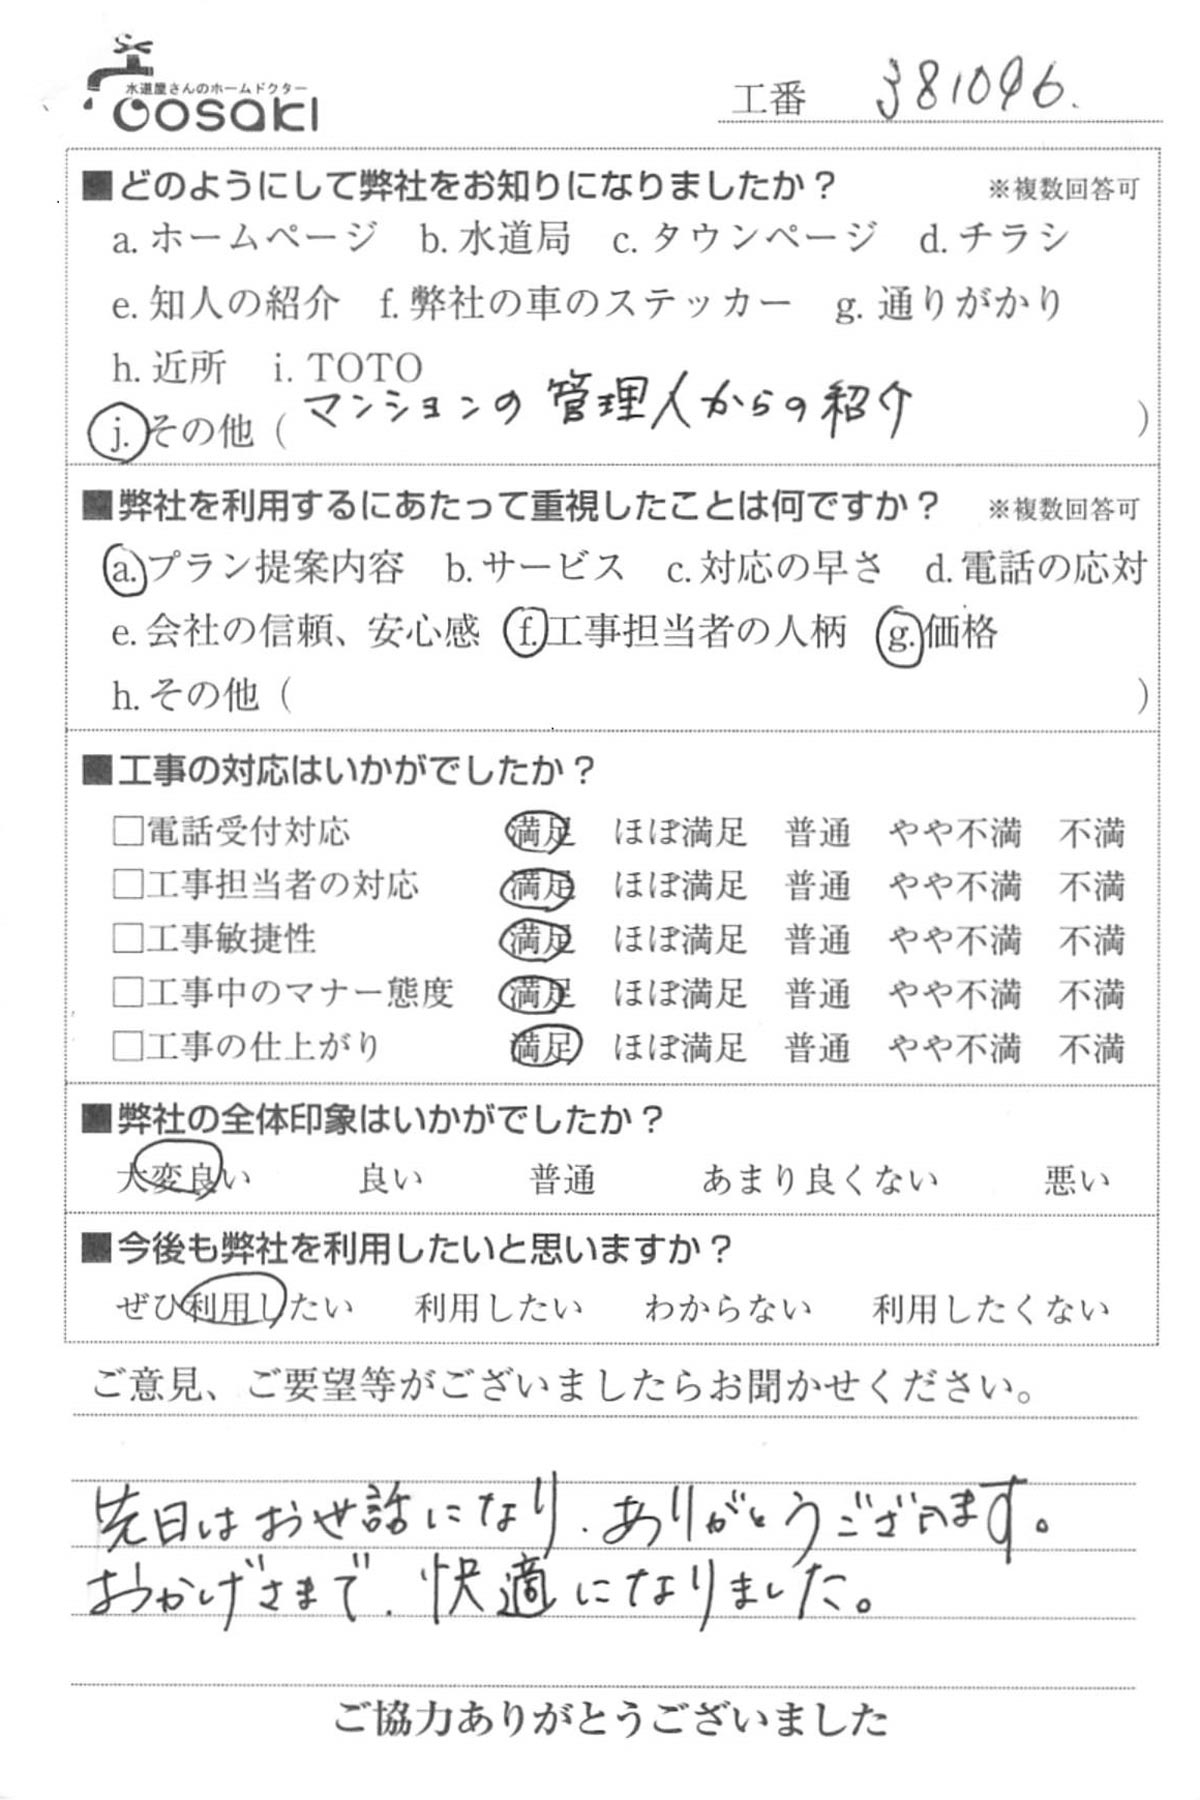 水道屋さんのホームドクター
oosaki
工番 381096.
■どのようにして弊社をお知りになりましたか？ ※複数回答可
a. ホームページ b. 水道局 c. タウンページ d. チラシ
e. 知人の紹介 f. 弊社の車のステッカー g. 通りがかり
h. 近所 i. TOTO
j. その他（マンションの管理人からの紹介）
■弊社を利用するにあたって重視したことは何ですか？ ※複数回答可
a. プラン提案内容 b. サービス c. 対応の早さ d. 電話の応対
e. 会社の信頼、安心感 f. 工事担当者の人柄 g. 価格
h. その他（ ）
■工事の対応はいかがでしたか？
□電話受付対応 満足 ほぼ満足 普通 やや不満 不満
□工事担当者の対応 満足 ほぼ満足 普通 やや不満 不満
□工事敏捷性 満足 ほぼ満足 普通 やや不満 不満
□工事中のマナー態度 満足 ほぼ満足 普通 やや不満 不満
□工事の仕上がり 満足 ほぼ満足 普通 やや不満 不満
■弊社の全体印象はいかがでしたか？
大変良い 良い 普通 あまり良くない 悪い
■今後も弊社を利用したいと思いますか？
ぜひ利用したい 利用したい わからない 利用したくない
ご意見、ご要望等がございましたらお聞かせください。
先日はお世話になり、ありがとうございます。
おかげさまで、快適になりました。
ご協力ありがとうございました